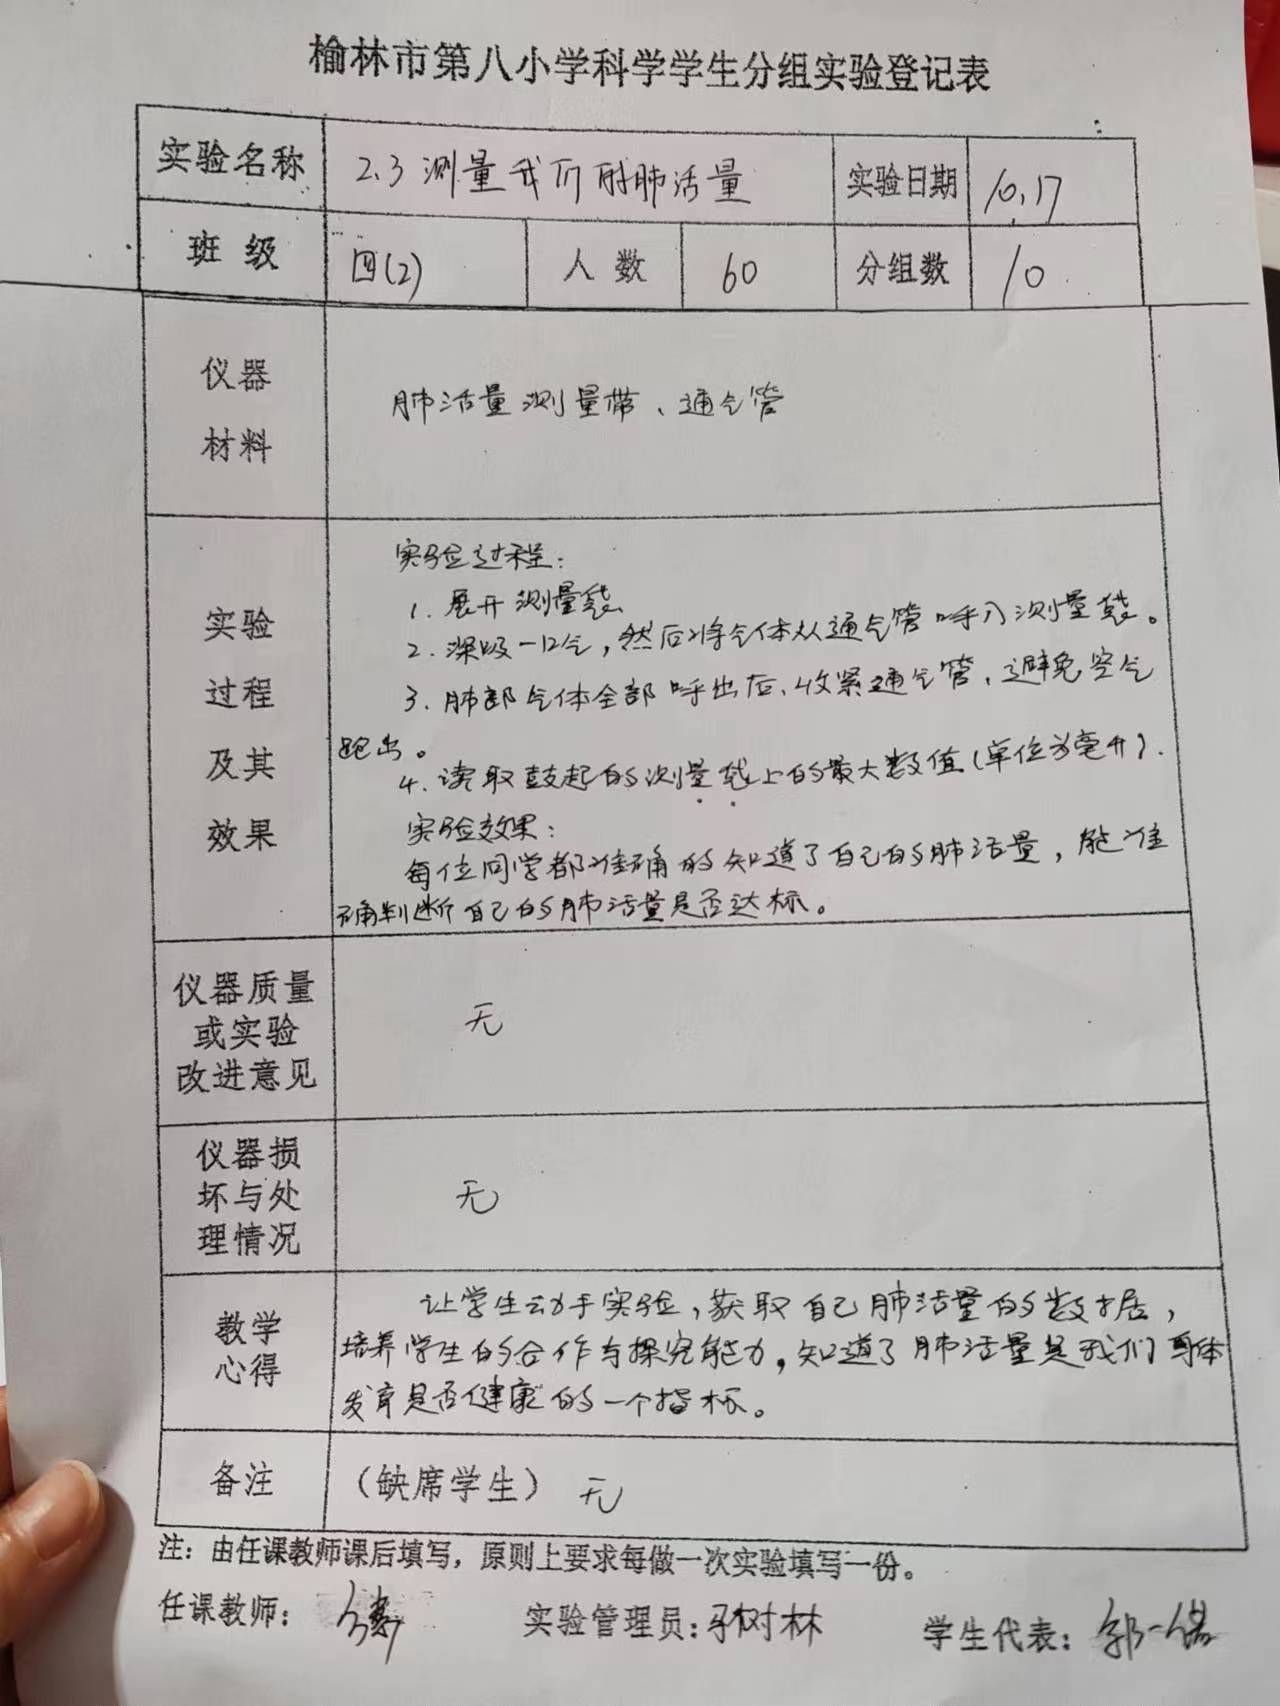 榆林市第八小学科学学生分组实验登记表
实验名称 2.3 测量我们的肺活量 实验日期 10.17
班级 四(2) 人数 60 分组数 10
仪器
材料
肺活量测量带、通气管
实验
过程
及其
效果
实验过程:
1. 展开测量袋
2. 深吸一口气,然后将气体从通气管呼入测量袋。
3. 肺部气体全部呼出后、收紧通气管、避免空气
跑出。
4. 读取鼓起的测量袋上的最大数值(单位为毫升).
实验效果:
每位同学都准确的知道了自己的肺活量,能准
确判断自己的肺活量是否达标。
仪器质量
或实验
改进意见
无
仪器损
坏与处
理情况
无
教学
心得
让学生动手实验,获取自己肺活量的数据,
培养学生的合作与探究能力,知道了肺活量是我们身体
发育是否健康的一个指标。
备注 (缺席学生) 无
注:由任课教师课后填写,原则上要求每做一次实验填写一份。
任课教师: 实验管理员: 树林 学生代表: 郭一